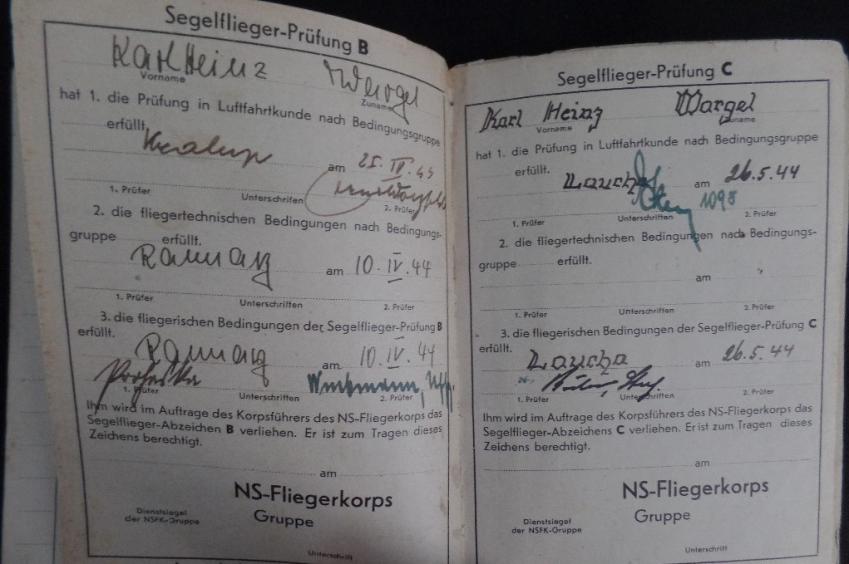 Segelflieger-Prüfung B
Karl Heinz
Vorname
Zuname
hat 1. die Prüfung in Luftfahrtkunde nach Bedingungsgruppe
erfüllt.
am 25. IV. 43
1. Prüfer Unterschriften 2. Prüfer
2. die fliegertechnischen Bedingungen nach Bedingungs-
gruppe erfüllt.
am 10. IV. 44
1. Prüfer Unterschriften 2. Prüfer
3. die fliegerischen Bedingungen der Segelflieger-Prüfung B
erfüllt.
am 10. IV. 44
1. Prüfer Unterschriften 2. Prüfer
Ihm wird im Auftrage des Korpsführers des NS-Fliegerkorps das
Segelflieger-Abzeichen B verliehen. Er ist zum Tragen dieses
Zeichens berechtigt.
am
NS-Fliegerkorps
Dienstsiegel
der NSFK-Gruppe
Gruppe
Unterschrift
Segelflieger-Prüfung C
Karl Heinz Wargel
Vorname Zuname
hat 1. die Prüfung in Luftfahrtkunde nach Bedingungsgruppe
erfüllt.
Laucha am 26.5.44
1098
1. Prüfer Unterschriften 2. Prüfer
2. die fliegertechnischen Bedingungen nach Bedingungs-
gruppe erfüllt.
am
1. Prüfer Unterschriften 2. Prüfer
3. die fliegerischen Bedingungen der Segelflieger-Prüfung C
erfüllt.
Laucha am 26.5.44
1. Prüfer Unterschriften 2. Prüfer
Ihm wird im Auftrage des Korpsführers des NS-Fliegerkorps das
Segelflieger-Abzeichens C verliehen. Er ist zum Tragen dieses
Zeichens berechtigt.
am
NS-Fliegerkorps
Dienstsiegel
der NSFK-Gruppe
Gruppe
Unterschrift